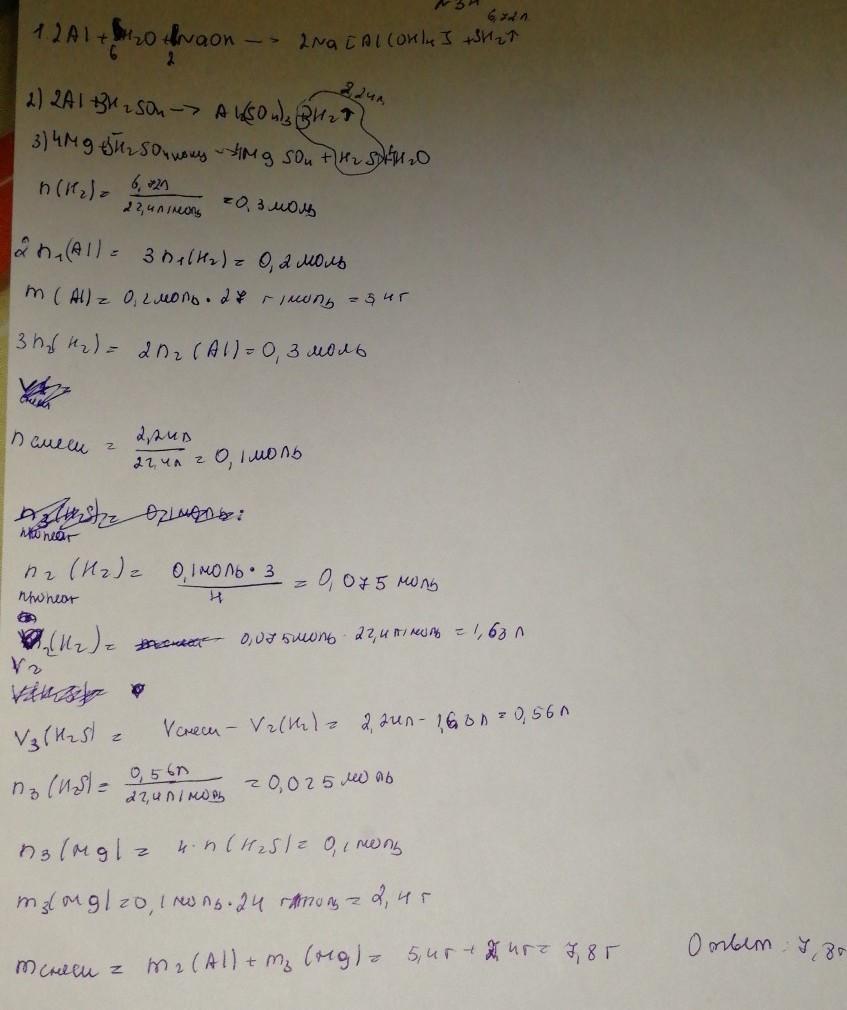 6,72л
1. 2Al + 6H2O + 2NaOH —> 2Na[Al(OH)4] + 3H2↑
2) 2Al + 3H2SO4 —> Al2(SO4)3 3H2↑ 2,24л
3) 4Mg + 5H2SO4 конц → 4MgSO4 + H2S + 4H2O
n(H2) = 6,72л / 22,4л/моль = 0,3 моль
2 n1(Al) = 3 n1(H2) = 0,2 моль
m(Al) = 0,2 моль · 27 г/моль = 5,4г
3n2(H2) = 2n2(Al) = 0,3 моль
n смеси = 2,24л / 22,4л = 0,1 моль
n2(H2) = 0,1 моль · 3 / 4 = 0,075 моль
V2(H2) = 0,075 моль · 22,4 л/моль = 1,63 л
V3(H2S) = Vсмеси - V2(H2) = 2,24л - 1,63л = 0,56л
n3(H2S) = 0,56л / 22,4л/моль = 0,025 моль
n3(Mg) = 4·n(H2S) = 0,1 моль
m3(Mg) = 0,1 моль · 24 г/моль = 2,4 г
mсмеси = m2(Al) + m3(Mg) = 5,4г + 2,4г = 7,8 г Ответ: 7,8г